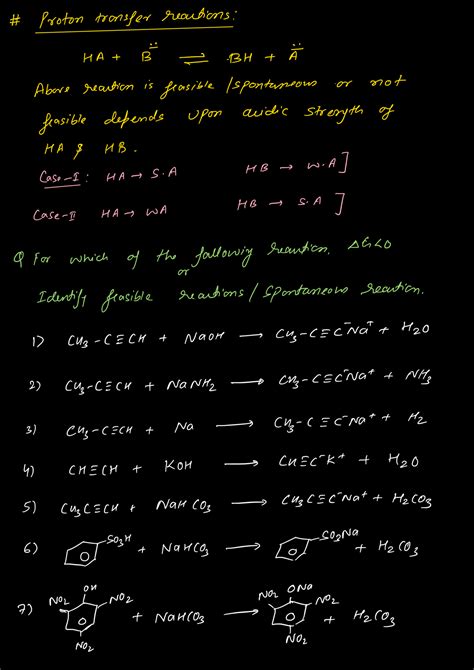 # Proton transfer reactions:
HA + B̈⁻ ⇌ BH + Ä⁻
Above reaction is feasible / spontaneous or not
feasible depends upon acidic strength of
HA & HB.
Case-I : HA → S.A HB → W.A]
Case-II HA → WA HB → S.A]
Q For which of the following reaction. ΔG<0
or
Identify feasible reactions / spontaneous reaction.
1) CH₃-C≡CH + NaOH → CH₃-C≡C⁻Na⁺ + H₂O
2) CH₃-C≡CH + NaNH₂ → CH₃-C≡C⁻Na⁺ + NH₃
3) CH₃-C≡CH + Na → CH₃-C≡C⁻Na⁺ + H₂
4) CH≡CH + KOH → CH≡C⁻K⁺ + H₂O
5) CH₃C≡CH + NaHCO₃ → CH₃C≡C⁻Na⁺ + H₂CO₃
6) SO₃H + NaHCO₃ → SO₃Na + H₂CO₃
7) OH NO₂ NO₂ NO₂ + NaHCO₃ → ONa NO₂ NO₂ NO₂ + H₂CO₃